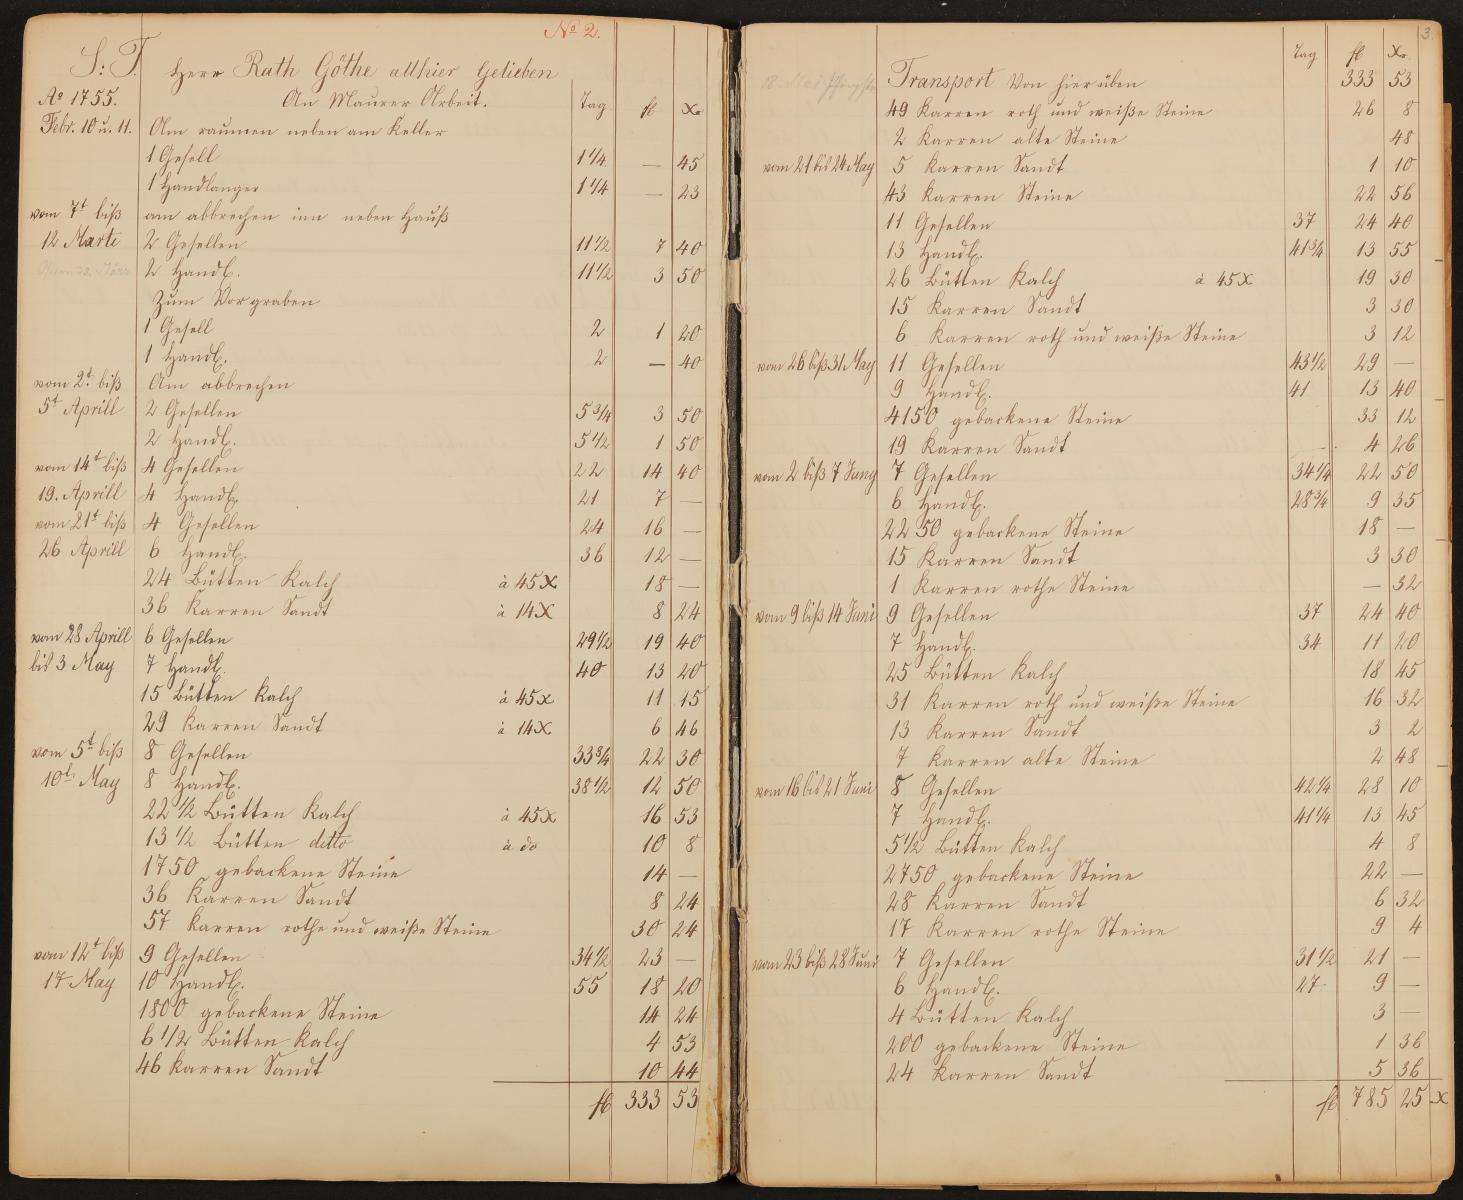 No 2.
S: T. Herr Rath Göthe allhier Gelieben
Ao 1755. An Maurer Arbeit. Tag fl X.
Febr. 10 u. 11. Am raumen neben am Keller
1 Gesell 1 1/4 — 45
1 Handlanger 1 1/4 — 23
vom 7t biß am abbrechen inn neben Hauß
12 Marti 2 Gesellen 11 1/2 7 40
2 Handl. 11 1/2 3 50
Zum Vorgraben
1 Gesell 2 1 20
1 Handl. 2 — 40
vom 2t biß Am abbrechen
5t Aprill 2 Gesellen 5 3/4 3 50
2 Handl. 5 1/2 1 50
vom 14t biß 4 Gesellen 22 14 40
19. Aprill 4 Handl. 21 7 —
vom 21t biß 4 Gesellen 24 16 —
26 Aprill 6 Handl. 36 12 —
24 Bütten Kalch à 45 X 18 —
36 Karren Sandt à 14 X 8 24
vom 28 Aprill 6 Gesellen 29 1/2 19 40
bis 3 May 7 Handl. 40 13 20
15 Bütten Kalch à 45 X 11 15
29 Karren Sandt à 14 X 6 46
vom 5t biß 8 Gesellen 33 3/4 22 30
10t May 8 Handl. 38 1/2 12 50
22 1/2 Bütten Kalch à 45 X 16 53
13 1/2 Bütten ditto à do 10 8
1750 gebackene Steine 14 —
36 Karren Sandt 8 24
57 Karren rothe und weiße Steine 30 24
vom 12t biß 9 Gesellen 34 1/2 23 —
17 May 10 Handl. 55 18 20
1800 gebackene Steine 14 24
6 1/2 Bütten Kalch 4 53
46 Karren Sandt 10 44
fl 333 53
3.
Tag fl X.
Transport von hierüben 333 53
49 Karren roth und weiße Steine 26 8
2 Karren alte Steine 48
vom 21 bis 24 May 5 Karren Sandt 1 10
43 Karren Steine 22 56
11 Gesellen 37 24 40
13 Handl. 41 3/4 13 55
26 Bütten Kalch à 45 X 19 30
15 Karren Sandt 3 30
6 Karren roth und weiße Steine 3 12
vom 26 biß 31 May 11 Gesellen 43 1/2 29 —
9 Handl. 41 13 40
4150 gebackene Steine 33 12
19 Karren Sandt 4 26
vom 2 biß 7 Juny 7 Gesellen 34 1/4 22 50
6 Handl. 28 3/4 9 35
2250 gebackene Steine 18 —
15 Karren Sandt 3 30
1 Karren rothe Steine — 32
vom 9 biß 14 Juni 9 Gesellen 37 24 40
7 Handl. 34 11 20
25 Bütten Kalch 18 45
31 Karren roth und weiße Steine 16 32
13 Karren Sandt 3 2
7 Karren alte Steine 2 48
vom 16 bis 21 Juni 8 Gesellen 42 1/4 28 10
7 Handl. 41 1/4 13 45
5 1/2 Bütten Kalch 4 8
2750 gebackene Steine 22 —
28 Karren Sandt 6 32
17 Karren rothe Steine 9 4
vom 23 biß 28 Juni 7 Gesellen 31 1/2 21 —
6 Handl. 27 9 —
4 Bütten Kalch 3 —
200 gebackene Steine 1 36
24 Karren Sandt 5 36
fl 785 25 X